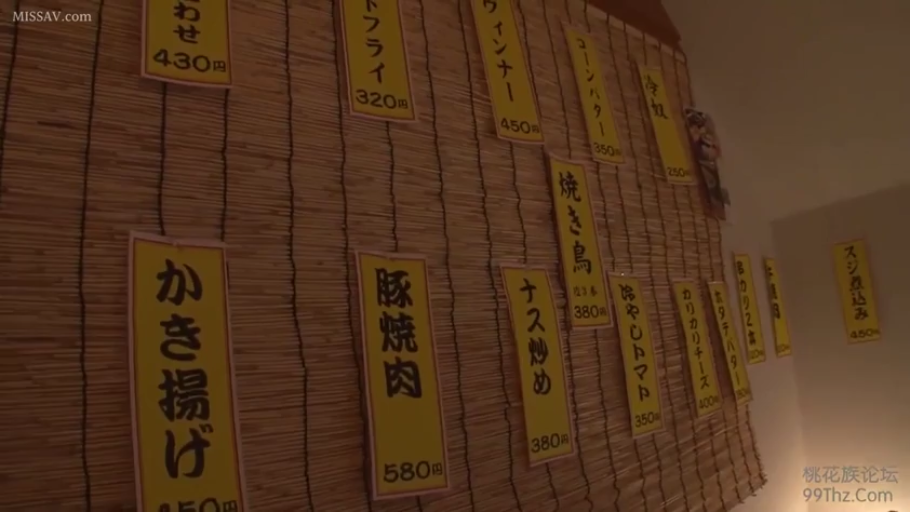 MISSAV.COM
わせ
430円
トフライ
320円
ウィンナー
450円
コーンバター
350円
冷奴
250円
焼き鳥
380円
かき揚げ
450円
豚焼肉
580円
ナス炒め
380円
冷やしトマト
350円
カリカリチーズ
400円
ホタテバター
串カツ2本
スジ煮込み
450円
桃花族论坛
99Thz.Com